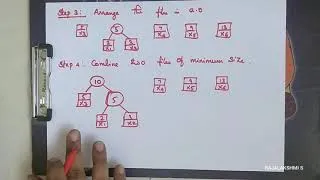 Step 3: Arrange the files in a.o
5
5 x3
2 x1
3 x2
7 x4
9 x5
13 x6
Step 4: Combine two files of minimum size.
10
5 x3
5
2 x1
3 x2
7 x4
9 x5
13 x6
RAJALAKSHMI S